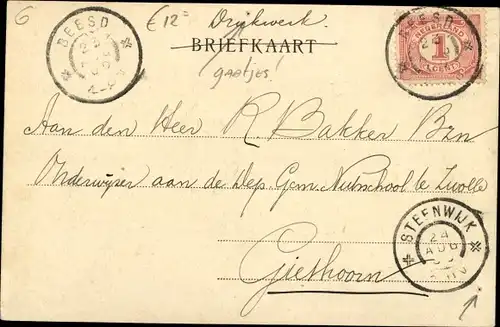 6
€ 12=
Drukwerk.
BRIEFKAART
gaatjes!
BEESD
BEESD
NEDERLAND
1
CENT
Aan den Heer R. Bakker Bzn
Onderwijzer aan de Dep. Gem. Nutschool te Zwolle
Giethoorn
STEENWIJK
24
AUG